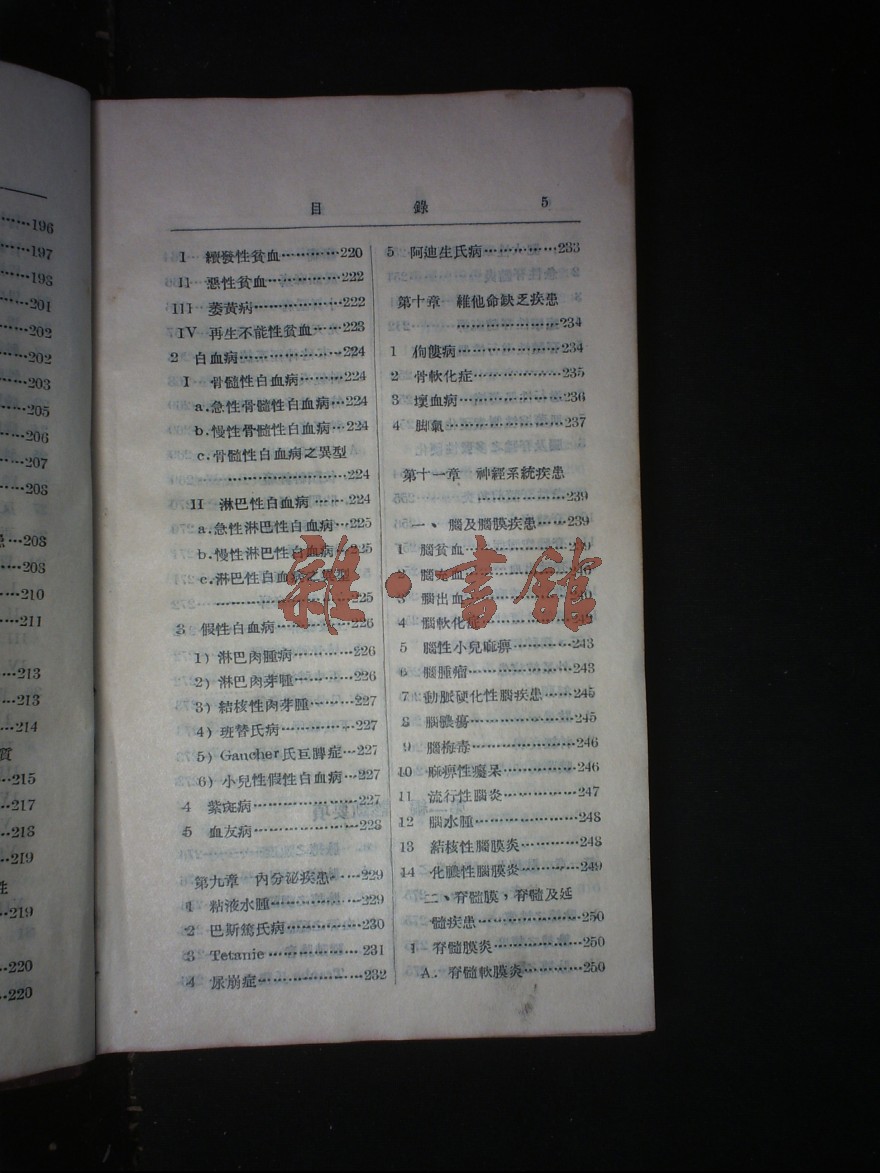 目 錄 5
196
197
198
201
202
202
203
205
206
207
208
患…208
208
210
211
213
213
214
質
215
217
218
219
性
219
220
220
I 續發性貧血…………220
II 惡性貧血……………222
III 萎黃病………………222
IV 再生不能性貧血……223
2 白血病…………………224
I 骨髓性白血病………224
a.急性骨髓性白血病…224
b.慢性骨髓性白血病…224
c.骨髓性白血病之異型
……………………224
II 淋巴性白血病……224
a.急性淋巴性白血病…225
b.慢性淋巴性白血病…225
c.淋巴性白血病之異型
……………………225
3 假性白血病……………226
1) 淋巴肉腫病…………226
2) 淋巴肉芽腫…………226
3) 結核性肉芽腫………227
4) 班替氏病……………227
5) Gaucher氏巨脾症…227
6) 小兒性假性白血病…227
4 紫斑病…………………227
5 血友病…………………228
第九章 內分泌疾患……229
1 粘液水腫………………229
2 巴斯篤氏病……………230
3 Tetanie………………231
4 尿崩症…………………232
5 阿迪生氏病……………233
第十章 維他命缺乏疾患
……………………234
1 佝僂病…………………234
2 骨軟化症………………235
3 壞血病…………………236
4 脚氣……………………237
第十一章 神經系統疾患
……………………239
一、腦及腦膜疾患……239
1 腦貧血…………………239
2 腦充血
3 腦出血…………………240
4 腦軟化症
5 腦性小兒麻痹…………243
6 腦腫瘤…………………243
7 動脈硬化性腦疾患……245
8 腦膿瘍…………………245
9 腦梅毒…………………246
10 麻痹性癡呆……………246
11 流行性腦炎……………247
12 腦水腫…………………248
13 結核性腦膜炎…………248
14 化膿性腦膜炎…………249
二、脊髓膜，脊髓及延
髓疾患………………250
1 脊髓膜炎………………250
A. 脊髓軟膜炎…………250
雜·書館